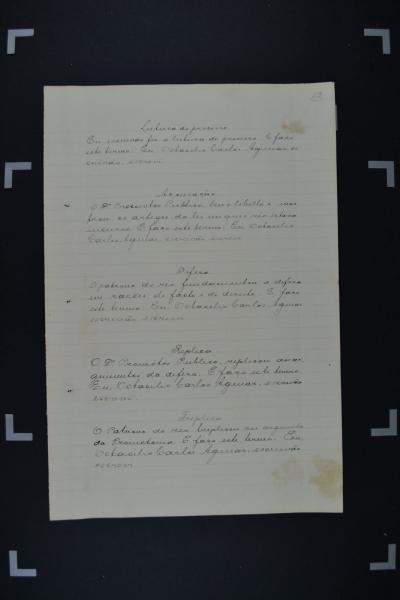 Leitura do processo
Eu escrivão fiz a leitura do processo. E faço
este termo. Eu, Octacilio Carlos Aguiar, es
crivão, escrevi.
Accusação
O Dr Promotor Publico leu o libello e mos
trou os artigos da lei em que o réo estava
incurso. E faço este termo. Eu Octacilio
Carlos Aguiar, escrivão escrevi
Defesa
O patrono do réo fundamentou a defesa
em razões de facto e de direito. E faço
este termo. Eu, Octacilio Carlos Aguiar
escrivão escrevi
Replica
O Dr Promotor Publico, replicou aos ar
gumentos da defesa. E faço este termo.
Eu, Octacilio Carlos Aguiar, escrivão
escrevi.
Treplica
O Patrono do réo treplicou os argumentos
da Promotoria. E faço este termo. Eu,
Octacilio Carlos Aguiar, escrivão
escrevi